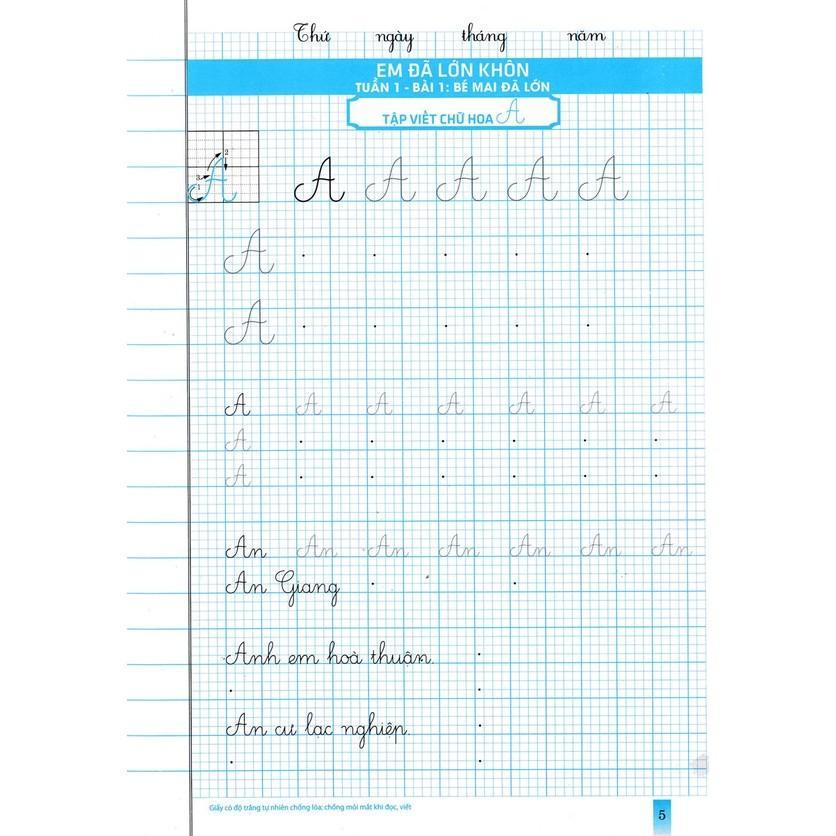 Thứ ngày tháng năm
EM ĐÃ LỚN KHÔN
TUẦN 1 - BÀI 1: BÉ MAI ĐÃ LỚN
TẬP VIẾT CHỮ HOA A
2
3
1
A A A A A
A
A
A A A A A A A
A
A
An An An An An An An
An Giang
Anh em hoà thuận.
An cư lạc nghiệp.
Giấy có độ trắng tự nhiên chống lóa; chống mỏi mắt khi đọc, viết
5